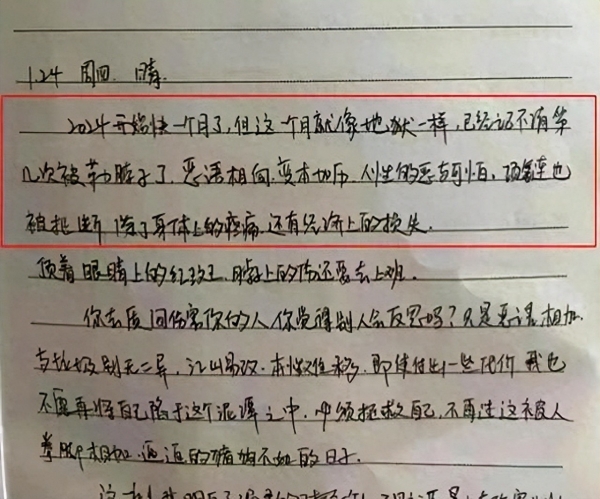 1.24 周四. 晴.
2024开始快一个月了, 但这一个月就像地狱一样, 已经记不清第
几次被勒脖子了. 恶语相向, 变本加厉. 人性的恶与可怕, 项链也
被扯断 除了身体上的疼痛, 还有经济上的损失.
顶着眼睛上的红斑, 脖子上的伤还要去上班.
你去质问伤害你的人你觉得别人会反思吗? 只是恶语相加
与垃圾别无二异, 江山易改. 本性难移, 即使付出一些代价 我也
不要再将自己陷于这个泥潭之中. 必须拯救自己, 不再过这被人
拳脚相加. 逼迫的猪狗不如的日子.